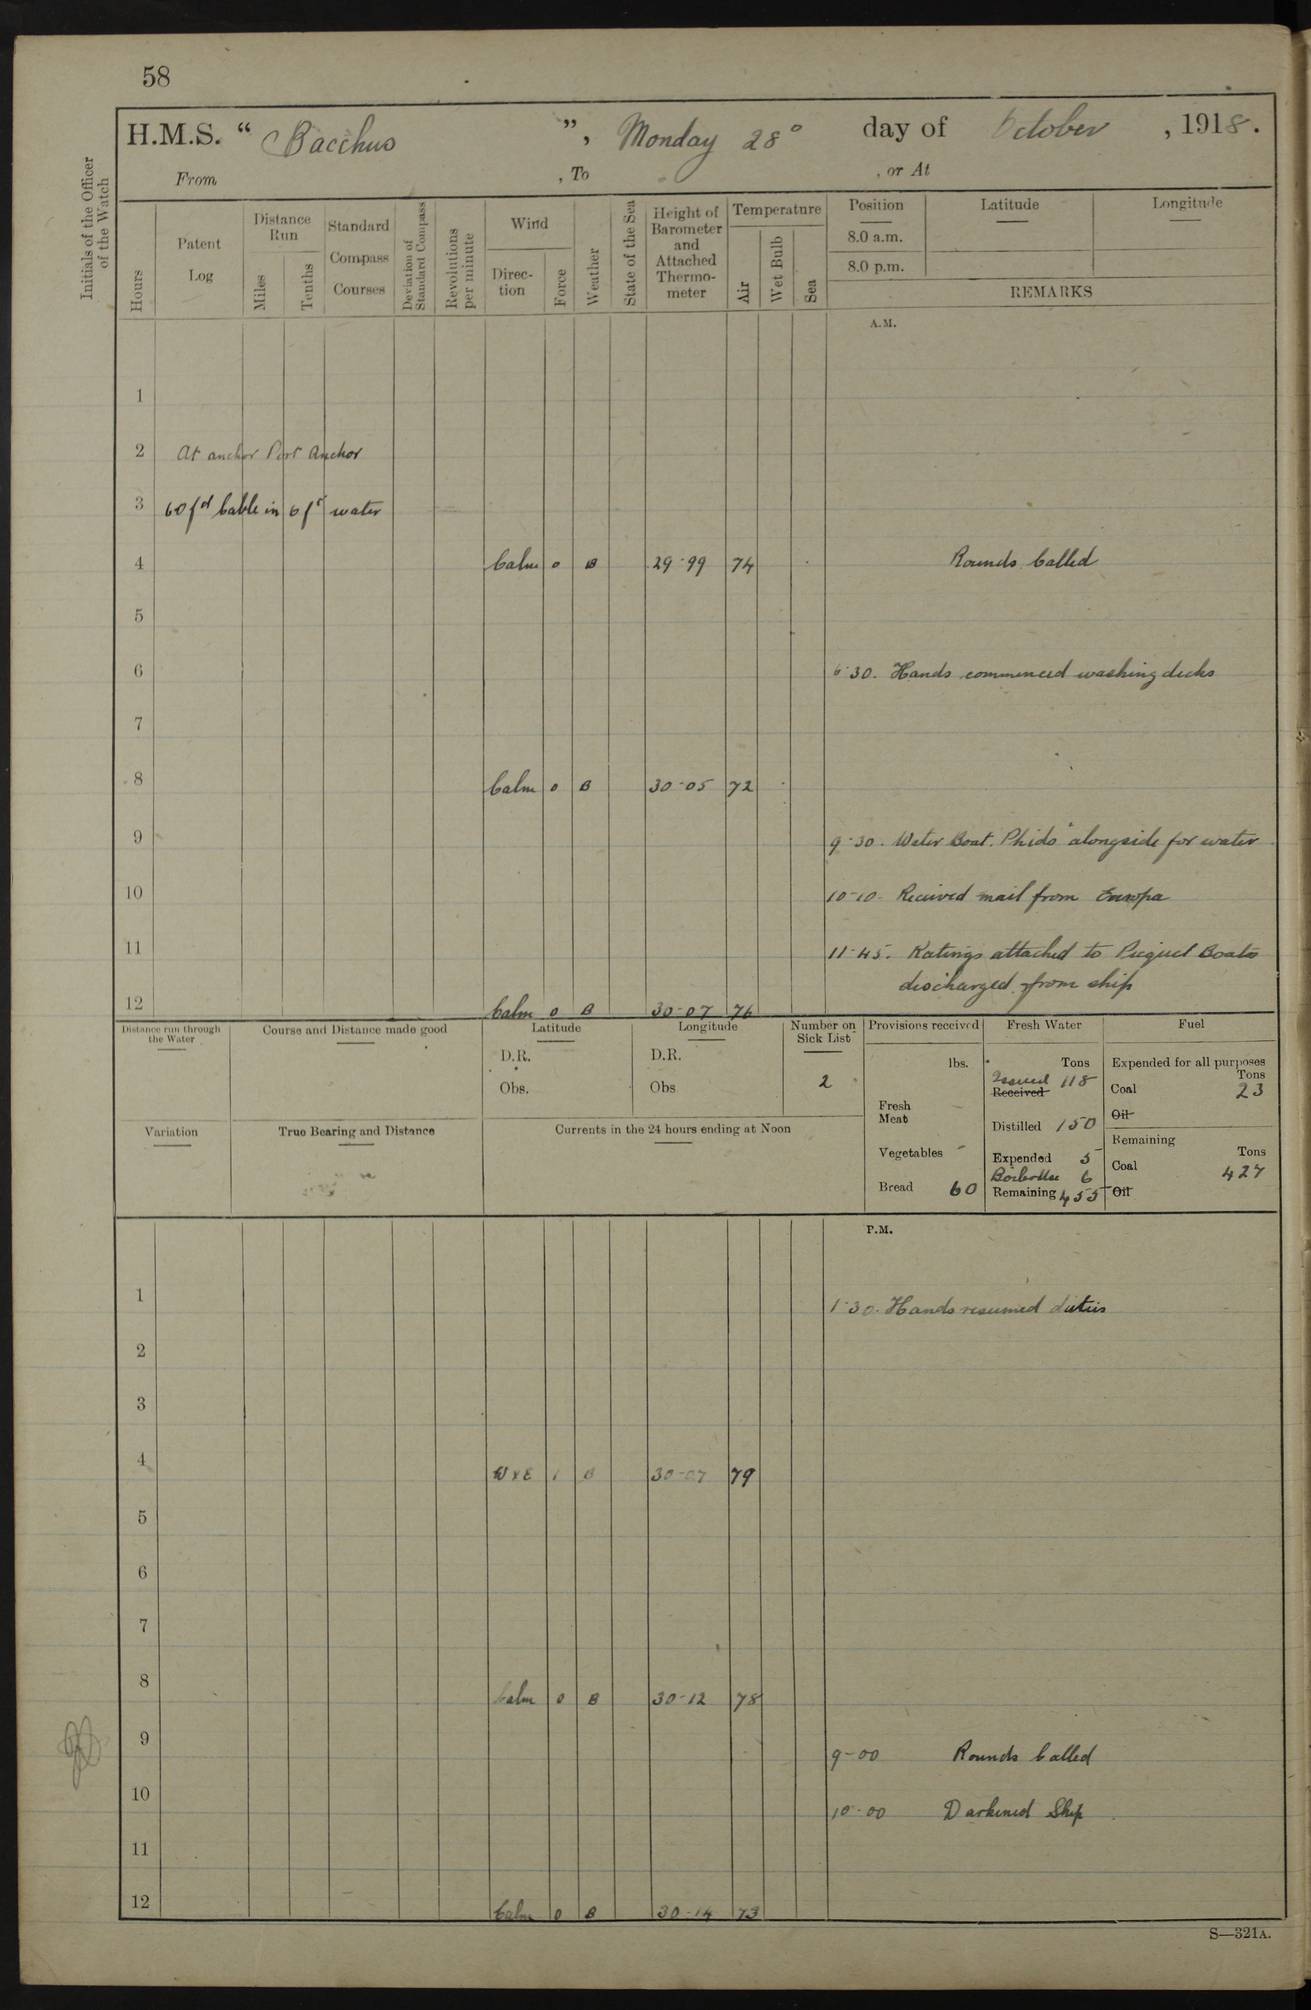 58
H.M.S. “ Bacchus ”, Monday 28° day of October , 1918.
From , To , or At
Initials of the Officer of the Watch
Hours
Patent Log
Distance Run
Miles
Tenths
Standard Compass Courses
Deviation of Standard Compass
Revolutions per minute
Wind
Direction
Force
Weather
State of the Sea
Height of Barometer and Attached Thermometer
Temperature
Air
Wet Bulb
Sea
Position
Latitude
Longitude
8.0 a.m.
8.0 p.m.
REMARKS
A.M.
1
2 At anchor Port Anchor
3 60 fd Cable in 6 fs water
4 Calm 0 B 29-99 74 Rounds Called
5
6 6-30. Hands commenced washing decks
7
8 Calm 0 B 30-05 72
9 9-30. Water Boat. Phido" alongside for water
10 10-10. Received mail from Europa
11 11-45. Ratings attached to Picquet Boats
discharged from ship
12 Calm 0 B 30-07 76
Distance run through the Water
Course and Distance made good
Latitude
D.R.
Obs.
Longitude
D.R.
Obs
Number on Sick List
2
Provisions received
lbs.
Fresh Meat -
Vegetables -
Bread 60
Fresh Water
Tons
Issued 118
Received
Distilled 150
Expended 5
Boilers 6
Remaining 455
Fuel
Expended for all purposes
Tons
Coal 23
Oil
Remaining
Tons
Coal 427
Oil
Variation
True Bearing and Distance
Currents in the 24 hours ending at Noon
P.M.
1 1-30. Hands resumed duties
2
3
4 WxE 1 B 30-07 79
5
6
7
8 Calm 0 B 30-12 78
9 9-00 Rounds Called
10 10-00 Darkened Ship
11
12 Calm 0 B 30-14 73
S—321A.